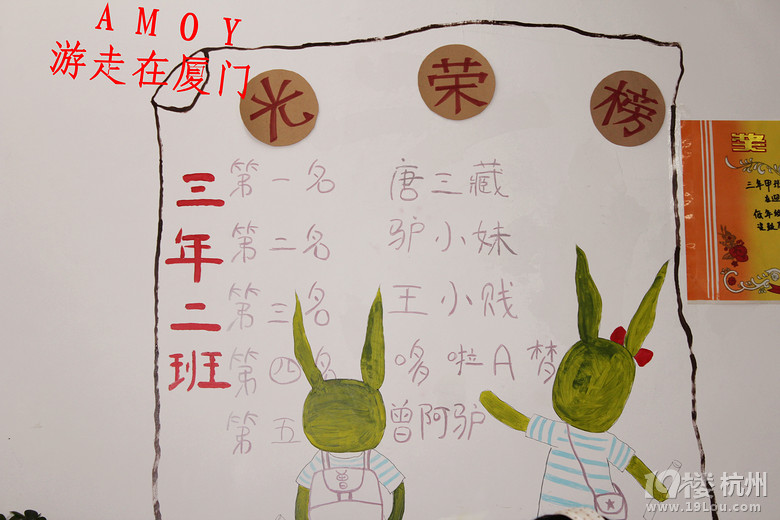 AMOY
游走在廈门
光荣榜
三年二班
第一名 唐三藏
第二名 驴小妹
第三名 王小贱
第四名 哆啦A梦
第五 曾阿驴
曾
奖
三年甲班
19楼 杭州
www.19lou.com